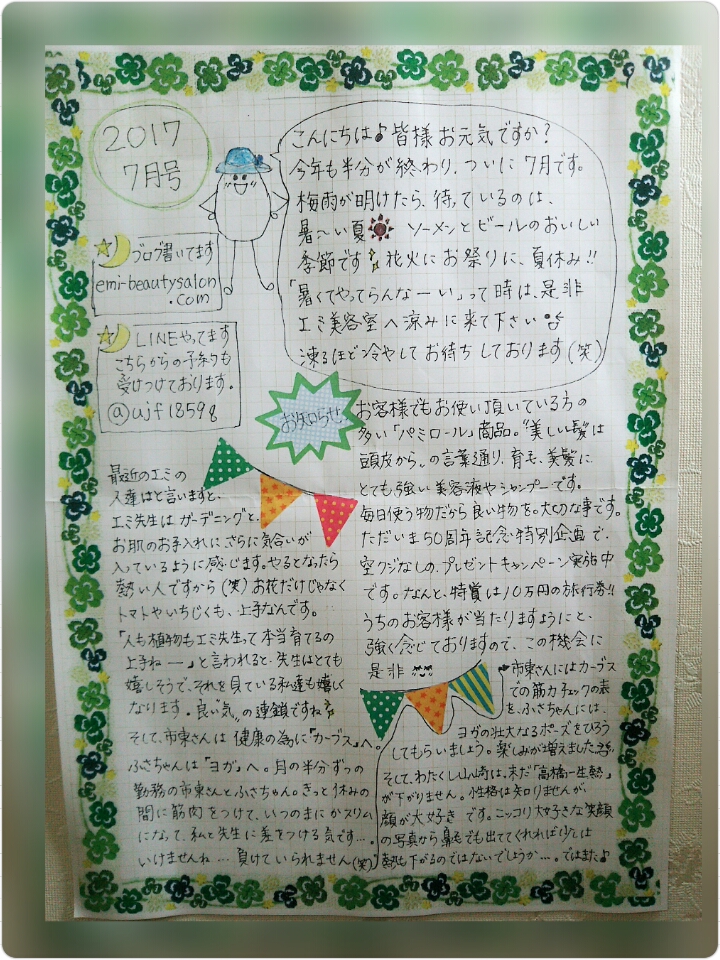 2017
7月号
こんにちは♪皆様お元気ですか?
今年も半分が終わり、ついに7月です。
梅雨が明けたら、待っているのは、
暑〜い夏 ソーメンとビールのおいしい
季節です 花火にお祭りに、夏休み!!
「暑くてやってらんなーい」って時は、是非
エミ美容室へ涼みに来て下さい
凍るほど冷やしてお待ちしております(笑)
ブログ書いてます
emi-beautysalon
.com
LINEやってます
こちらからの予約も
受けつけております。
@ujf1859g
お知らせ
最近のエミの
人達はと言いますと、
エミ先生はガーデニングと、
お肌のお手入れに、さらに気合いが
入っているように感じます。やるとなったら
熱い人ですから(笑)お花だけじゃなく
トマトやいちじくも、上手なんです。
「人も植物もエミ先生って本当育てるの
上手ねー」と言われると、先生はとても
嬉しそうで、それを見ている私達も嬉しく
なります。良い"気"の連鎖ですね
そして、市東さんは健康の為に「カーブス」へ。
ふさちゃんは「ヨガ」へ。月の半分ずつの
勤務の市東さんとふさちゃん。きっと休みの
間に筋肉をつけて、いつのまにかスリム
になって、私と先生に差をつける気です…。
いけませんね…負けていられません(笑)
お客様でもお使い頂いている方の
多い「パミロール」商品。"美しい髪は
頭皮から"の言葉通り、育毛、美髪に
とても強い美容液やシャンプーです。
毎日使う物だから良い物を。大切な事です。
ただいま50周年記念特別企画で、
空クジなしの、プレゼントキャンペーン実施中
です。なんと、特賞は10万円の旅行券!!
うちのお客様が当たりますようにと、
強く念じておりますので、この機会に
是非
市東さんにはカーブス
での筋力チェックの表
を、ふさちゃんには、
ヨガの壮大なるポーズをひろう
してもらいましょう。楽しみが増えました
そして、わたくし山崎は、未だ「高橋一生熱」
が下がりません。性格は知りませんが、
顔が大好きです。ニッコリ大好きな笑顔
の写真から鼻毛でも出ててくれれば少しは
熱も下がるのではないでしょうか…。ではまた♪